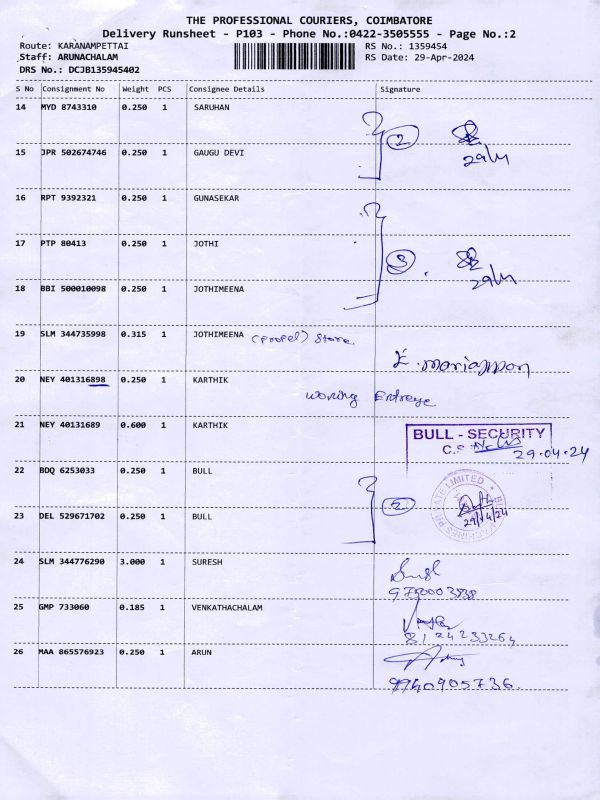 THE PROFESSIONAL COURIERS, COIMBATORE
Delivery Runsheet - P103 - Phone No.:0422-3505555 - Page No.:2
Route: KARANAMPETTAI RS No.: 1359454
Staff: ARUNACHALAM RS Date: 29-Apr-2024
DRS No.: DCJB135945402
S No Consignment No Weight PCS Consignee Details Signature
14 MYD 8743310 0.250 1 SARUHAN
2
29/4
15 JPR 502674746 0.250 1 GAUGU DEVI
16 RPT 9392321 0.250 1 GUNASEKAR
17 PTP 80413 0.250 1 JOTHI
3
29/4
18 BBI 500010098 0.250 1 JOTHIMEENA
19 SLM 344735998 0.315 1 JOTHIMEENA (Propel) Store
K. mariappan
20 NEY 401316898 0.250 1 KARTHIK
21 NEY 40131689 0.600 1 KARTHIK
BULL - SECURITY
29.04.24
22 BDQ 6253033 0.250 1 BULL
2
PRIVATE LIMITED
29/4/24
23 DEL 529671702 0.250 1 BULL
24 SLM 344776290 3.000 1 SURESH
25 GMP 733060 0.185 1 VENKATHACHALAM
8124233264
26 MAA 865576923 0.250 1 ARUN
9940905736